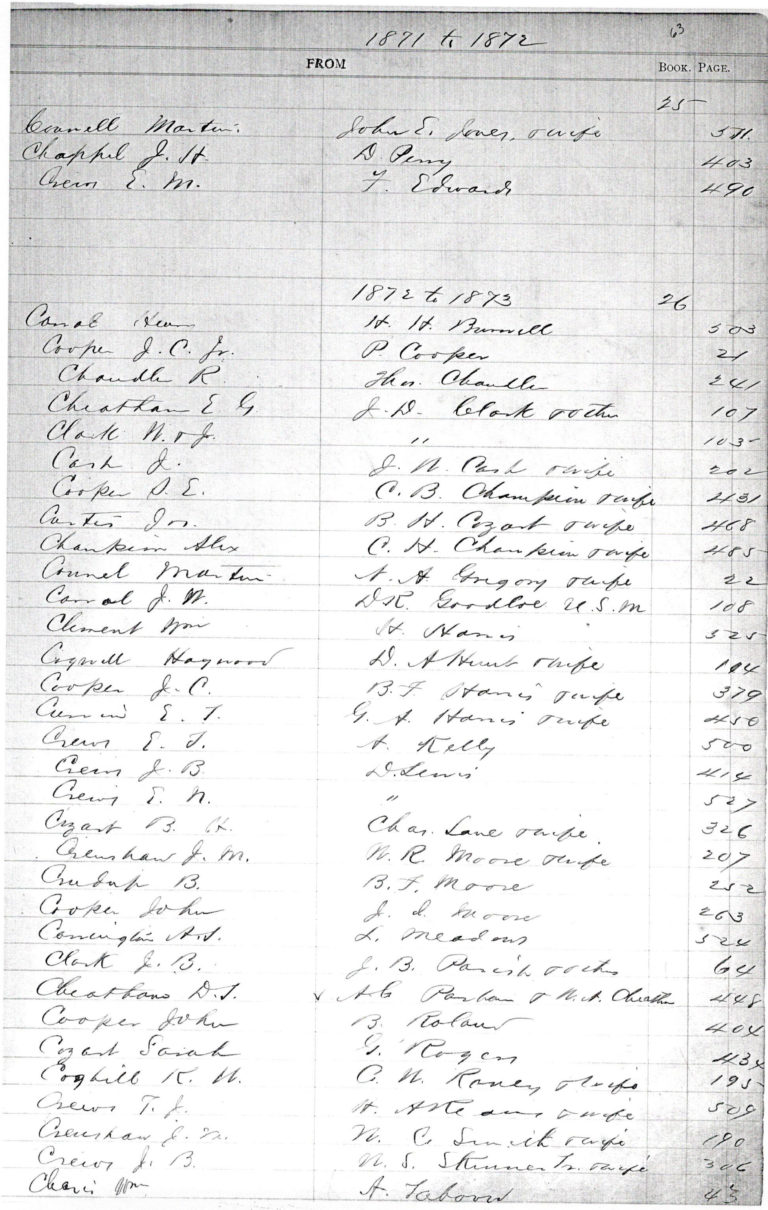 63
1871 to 1872
FROM BOOK. PAGE.
25
Connell Martin John E. Jones, & wife 511
Chappel J. H. D. Perry 403
Crews E. M. F. Edwards 490
1872 to 1873 26
H. H. Burwell 503
Cooper J. C. Jr. P. Cooper 21
Chandler R. Thos. Chandler 241
Cheatham E G J. D. Clark & others 107
Clark W. & J. " 105
Cash J. J. W. Cash & wife 202
Cooper S. E. C. B. Champion & wife 431
Curtis Jos. B. H. Cozart & wife 468
Champion Alex C. H. Champion & wife 485
Connel Martin N. A. Gregory & wife 22
J. W. D R. Goodloe U. S. M 108
Clement Wm H. Harris 325
Haywood D. A Hunt & wife 194
Cooper J. C. B. F. Harris & wife 379
E. T. G. A. Harris & wife 450
Crews E. T. A. Kelly 500
Crews J. B D. Lewis 414
Crews E. N. " 527
Cozart B. H. Chas. Lane & wife 326
Crenshaw J. M. W. R. Moore & wife 207
Crudup B. B. F. Moore 252
Cooper John J. I. Moore 263
Connington A. S. L. Meadows 524
Clark J. B. J. B. Parish & others 64
Cheatham D. T. A C Parham & W. A. Cheatham 448
Cooper John B. Roland 404
Cozart Sarah G. Rogers 434
Coghill K. W. C. W. Raney & wife 195
Crews T. J. H. & wife 509
Crenshaw J. M. W. C. Smith & wife 190
Crews J. B. W. S. Skinner Tr. & wife 306
Chavis Wm A. Taborn 43